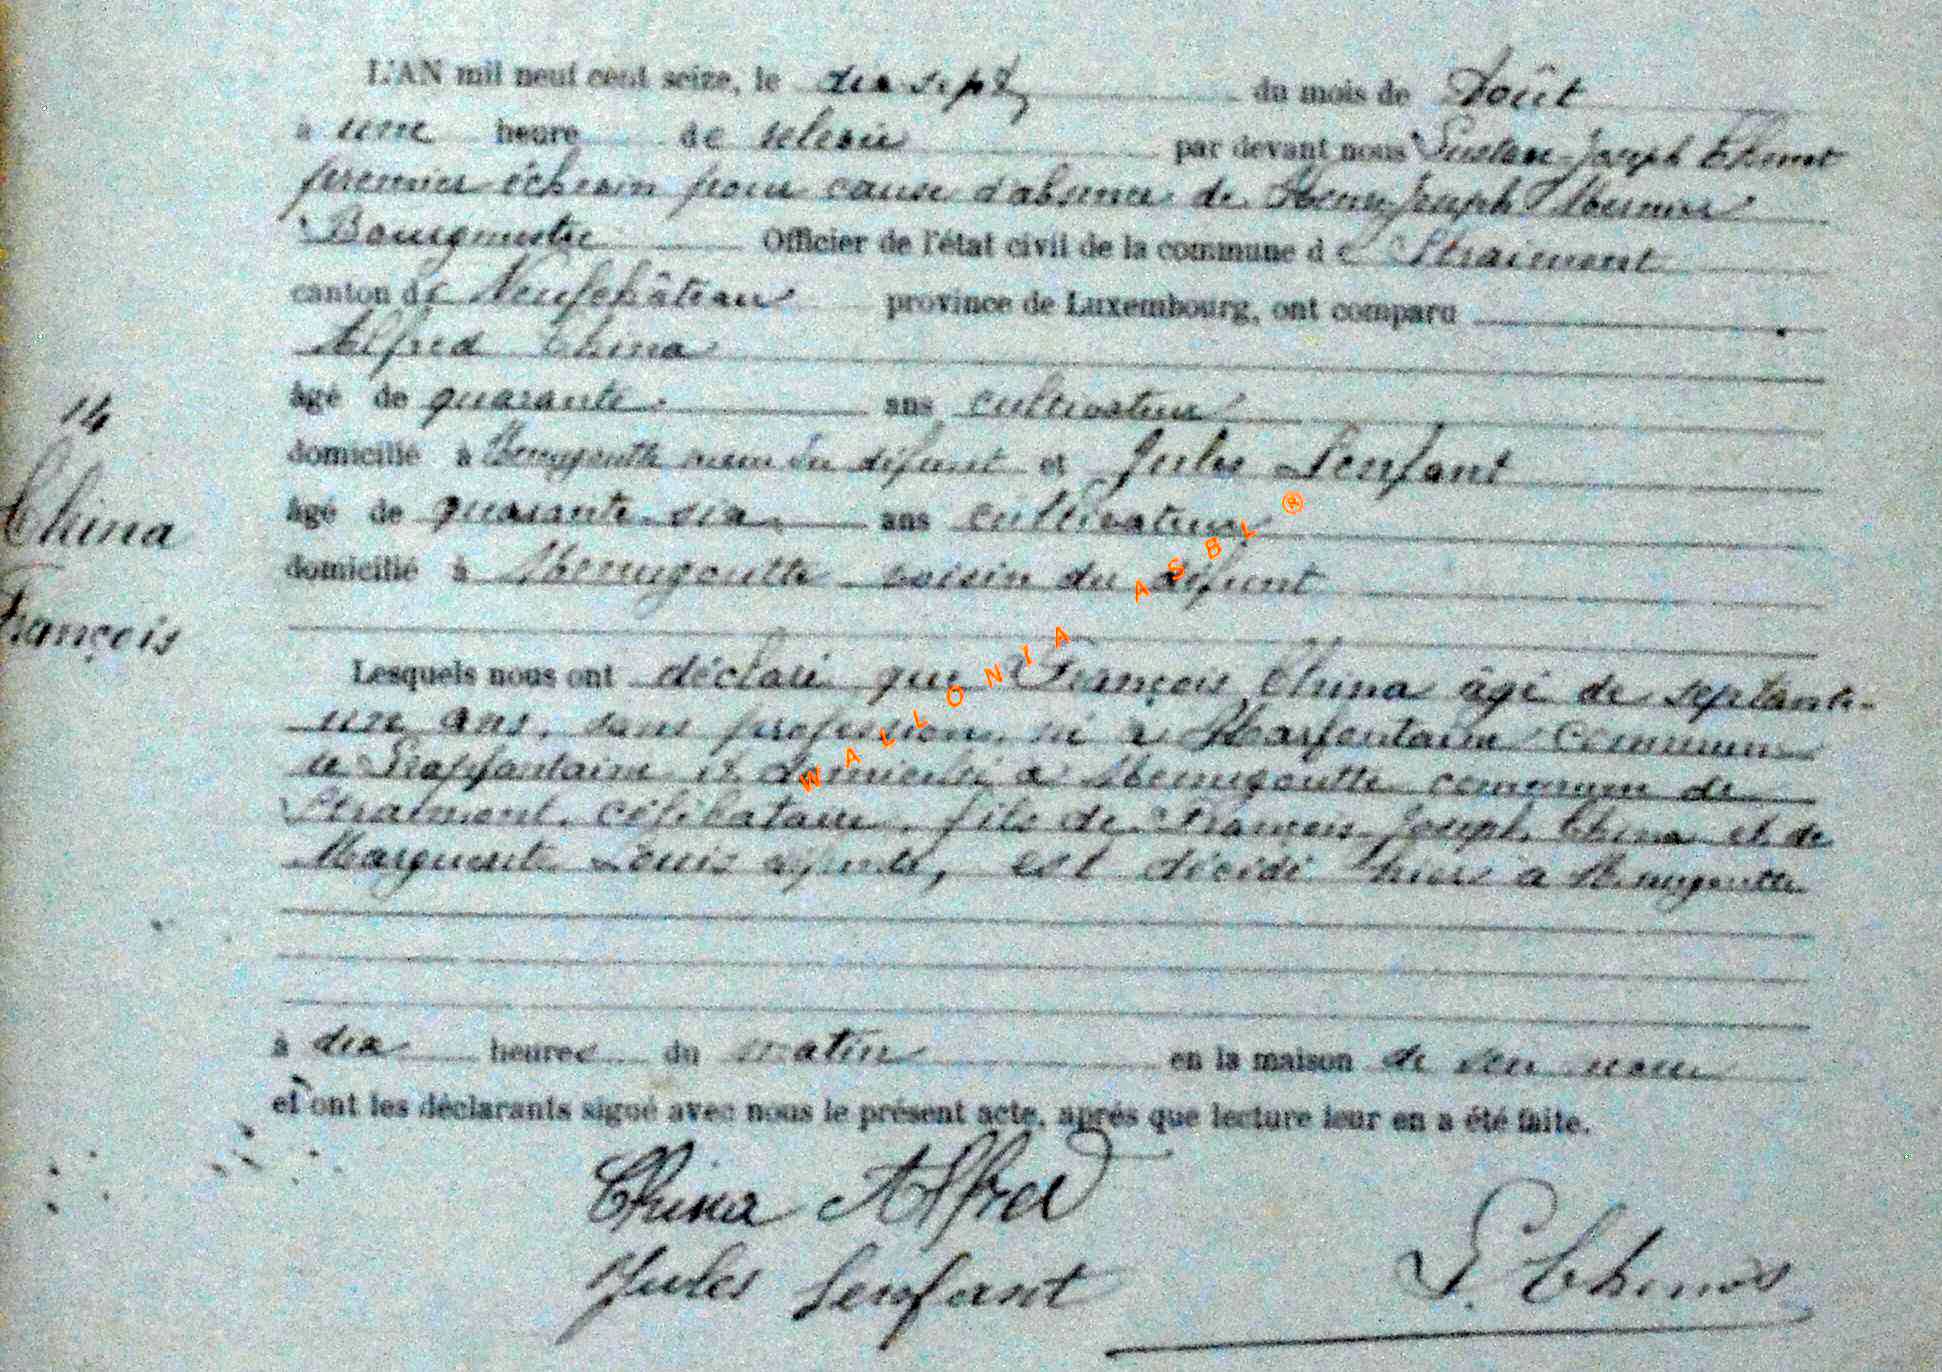 L'AN mil neuf cent seize, le dix sept du mois de Août
à une heure de relevée par devant nous Joseph
premier échevin pour cause d'absence de Henri Joseph
Bourgmestre Officier de l'état civil de la commune d e Straimont
canton de Neufchâteau province de Luxembourg, ont comparu
Alfred China
âgé de quarante ans cultivateur
domicilié à Menugoutte neveu du défunt et Jules Lenfant
14
âgé de quarante-six ans cultivateur
China
domicilié à Menugoutte voisin du défunt
François
Lesquels nous ont déclaré que François China âgé de septante-
une ans, sans profession, né à Harfontaine commune
de Grapfontaine et domicilié à Menugoutte commune de
Straimont, célibataire, fils de François-Joseph China et de
Marguerite Louis défunts, est décédé hier à Menugoutte
à dix heures du matin en la maison de son neveu
et ont les déclarants signé avec nous le présent acte, après que lecture leur en a été faite.
China Alfred
Jules Lenfant
WALLONIA ASBL ®